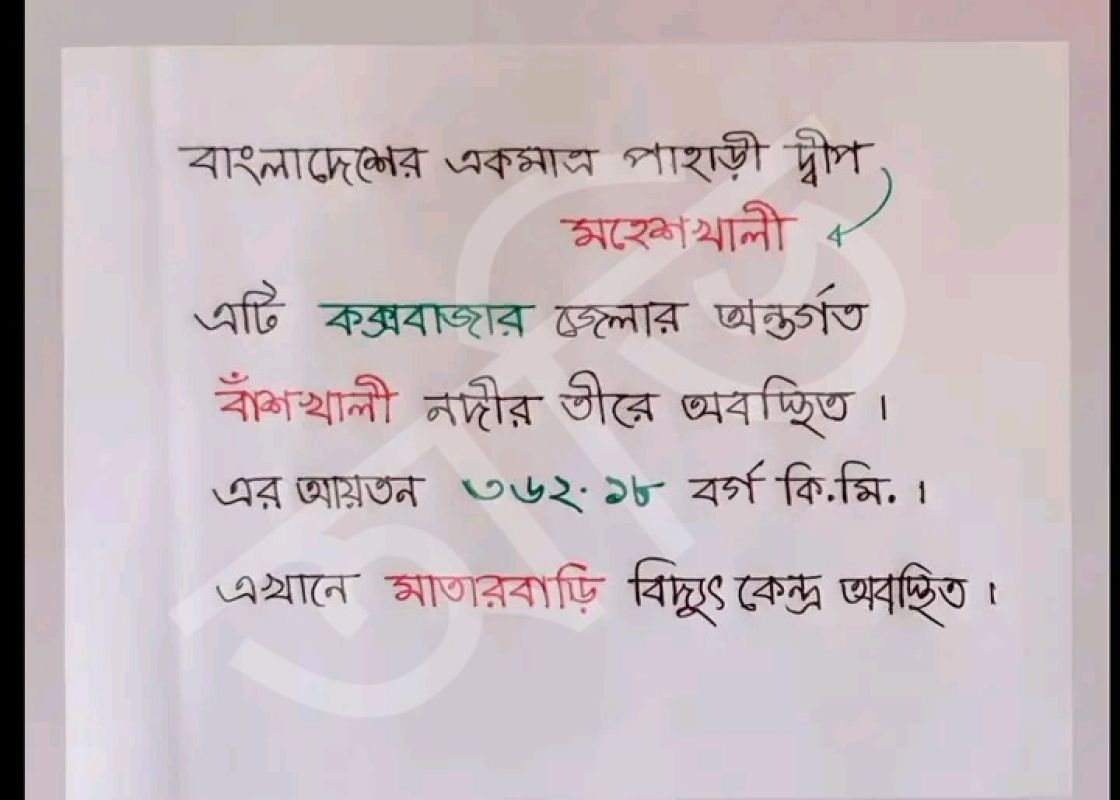 বাংলাদেশের একমাত্র পাহাড়ী দ্বীপ
মহেশখালী
এটি কক্সবাজার জেলার অন্তর্গত
বাঁশখালী নদীর তীরে অবস্থিত ।
এর আয়তন ৩৬২.১৮ বর্গ কি.মি. ।
এখানে মাতারবাড়ি বিদ্যুৎ কেন্দ্র অবস্থিত ।